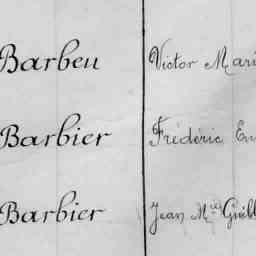 Barbeu Victor Mari
Barbier Frédéric Eu
Barbier Jean M^ie Guill